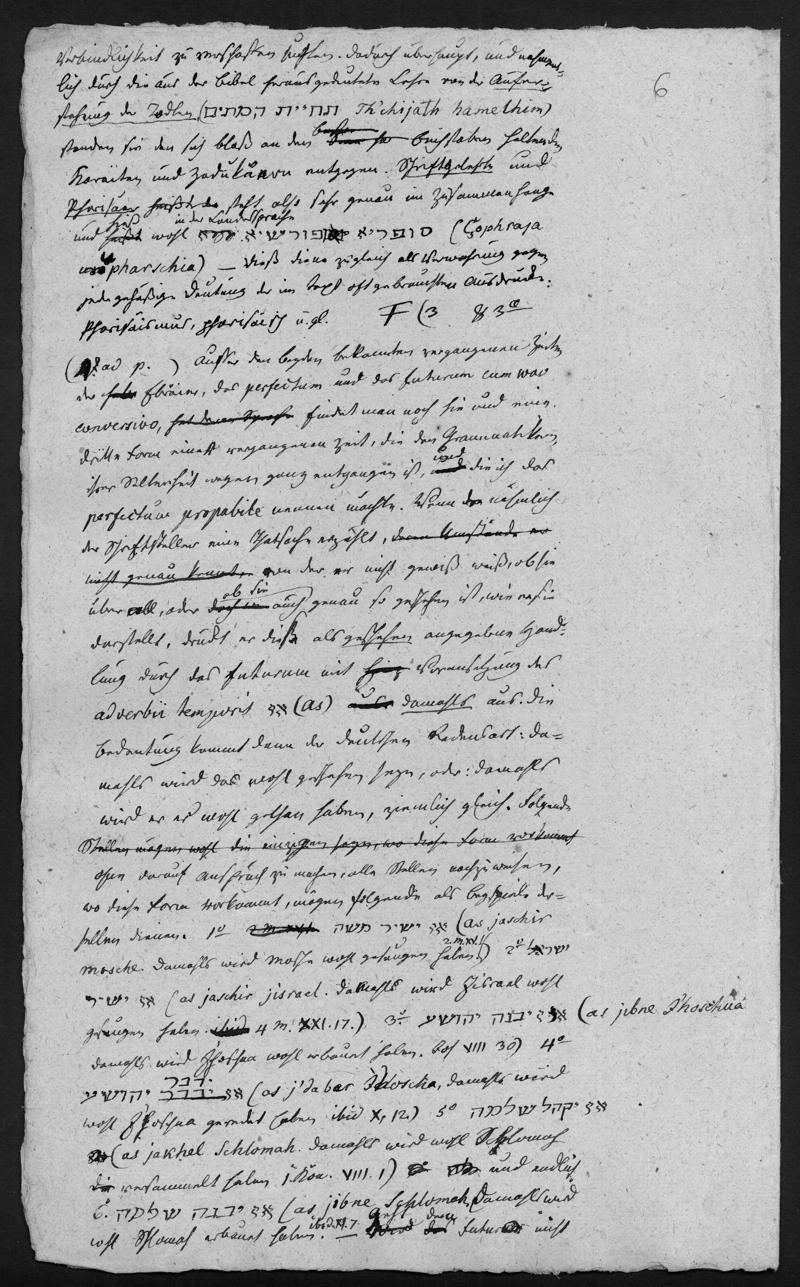 6
Verbindlichkeit zu verschaffen suchten. dadurch überhaupt, und nahment-
lich durch die aus der Bibel herausgedeutete Lehre von der Aufer-
stehung der Todten (תחיית המתים Th'chijath hamethim)
standen sie den sich bloß an den Buchstaben haltenden
Karaiten und Zadukäern entgegen. Schriftgelehrte und
Pharisäer steht also sehr genau im Zusammenhange
in der Landessprache
und hieß wohl סופריא ופורישיא (Çophraja
upharschia) — dieß diene zugleich als Verwahrung gegen
jede gehäßige Deutung der im Text oft gebrauchten Ausdrücke:
Pharisäismus, pharisäisch u. gl. F (3
(ad p. ) Ausser den beyden bekannten vergangenen Zeiten
der Ebräer, das perfectum und das futurum cum wav
conversivo, findet man noch hie und eine
dritte Form einer vergangenen Zeit, die den Grammatikern
ihrer Seltenheit wegen ganz entgangen ist, und die ich das
perfectum propabile nennen möchte. Wenn nähmlich
der Schriftsteller eine Thatsache erzählt, deren Umstände er
nicht genau kennt, von der er nicht gewiß weiß, ob sie
überall, oder ob sie auch genau so geschehen ist, wie er sie
darstellt, drückt er dieß als geschehen angegebene Hand-
lung durch das futurum mit Voransetzung des
adverbii temporis אז (as) damahls aus. die
Bedeutung kommt dann der deutschen Redensart: da-
mahls wird das wohl geschehen seyn, oder: damahls
wird er es wohl gethan haben, ziemlich gleich. Folgende
Stellen mögen wohl die einzigen seyn, wo diese Form vorkommt
ohne darauf Anspruch zu machen, alle Stellen nachzuweisen,
wo diese Form vorkommt, mögen folgende als Beyspiele der-
selben dienen. 1º אז ישיר משה (as jaschir
mosche damahls wird Mosche wohl gesungen haben 2 m. XV. 1) 2º ישראל
אז ישיר (as jaschir jisrael. damahls wird Jisrael wohl
gesungen haben 4 m. XXI. 17.) 3º אז יבנה יהושע (as jibne J'hoschua
damahls wird J'hoschua wohl erbauet haben. Jos VIII 30) 4º
אז ידבר יהושע (as j'dabar J'hoscha, damahls wird
wohl J'hoschua geredet haben ibid X, 12.) 5º אז יקהל שלמה
(as jakhel Schlomah. damahls wird wohl Schlomah
versammelt haben 1. Kön. VIII. 1) und endlich
6º אז יבנה שלמה (as jibne Schlomah, damahls wird
wohl Schlomah erbauet haben. ibid XI. 7. — Futurum nicht